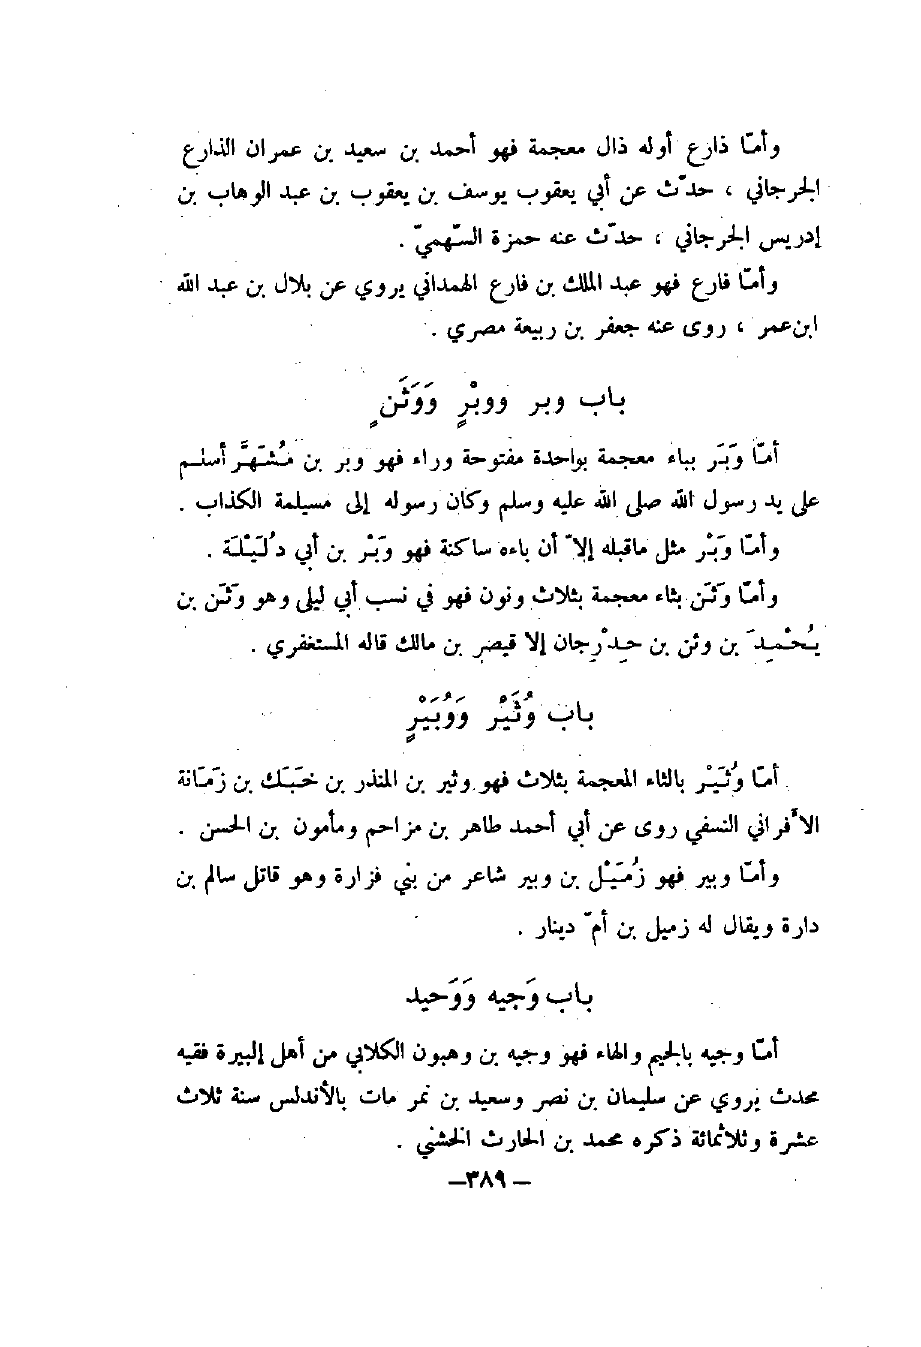 وأمّا ذارع أوله ذال معجمة فهو أحمد بن سعيد بن عمران الذارع
الجرجاني ، حدّث عن أبي يعقوب يوسف بن يعقوب بن عبد الوهاب بن
إدريس الجرجاني ، حدّث عنه حمزة السّهميّ .
وأمّا فارع فهو عبد الملك بن فارع الهمداني يروي عن بلال بن عبد الله
ابن عمر ، روى عنه جعفر بن ربيعة مصري .
باب وبر ووبْرٍ وَوَثَنٍ
أمّا وَبَر بباء معجمة بواحدة مفتوحة وراء فهو وبر بن مُشَهَّر أسلم
على يد رسول الله صلى الله عليه وسلم وكان رسوله إلى مسيلمة الكذاب .
وأمّا وَبْر مثل ماقبله إلاّ أن باءه ساكنة فهو وَبْر بن أبي دُلَيْلَة .
وأمّا وَثَن بثاء معجمة بثلاث ونون فهو في نسب أبي ليلى وهو وَثَن بن
يُحْمِدَ بن وثن بن حِدْرِجان إلا قيصر بن مالك قاله المستغفري .
باب وُثَيْرٍ وَوُبَيْرٍ
أمّا وُثَيْر بالثاء المعجمة بثلاث فهو وثير بن المنذر بن حَبَك بن زَمَانة
الأفراني النسفي روى عن أبي أحمد طاهر بن مزاحم ومأمون بن الحسن .
وأمّا وبير فهو زُمَيْل بن وبير شاعر من بني فزارة وهو قاتل سالم بن
دارة ويقال له زميل بن أمّ دينار .
باب وَجيه وَوَحيد
أمّا وجيه بالجيم والهاء فهو وجيه بن وهبون الكلابي من أهل إلبيرة فقيه
محدث يروي عن سليمان بن نصر وسعيد بن نمر مات بالأندلس سنة ثلاث
عشرة وثلاثمائة ذكره محمد بن الحارث الخشني .
— ٣٨٩—